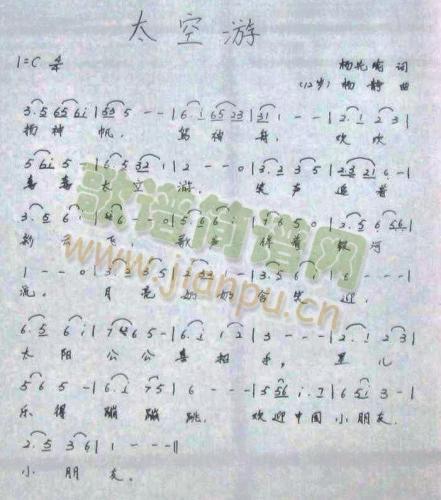 太空游
1=C 4/4
杨 词
(12岁) 杨静 曲
3. 5 65 6i | 53 5 - - | 6. i 65 23 | 31 1 - - | 2. 1 2 3 |
扬神帆, 驾神舟, 欢欢
5 6i 5 - | 6. 5 32 1 | 2 - - 0 | 3. 2 3 5 | 2.3 21 6 - |
喜喜太空游. 笑声追着
3. 5 6 i
彩云飞, 歌声伴着银河
1 - - 0 | 3 3 3 5 |
流. 月亮奶奶含笑迎,
6. 5 6 i | 7 #4 6 5 - | 6. i 1 2 | 3 - - - | 2. 1 2 3 |
太阳公公喜招手, 星儿
5 6 5 - | 6. i 7 5 | 6 - - - | 5 56 i. i | 6 5i 3 - |
乐得蹦蹦跳, 欢迎中国小朋友.
2. 5 3 6 | 1 - - - ||
小朋友.
歌谱简谱网
www.jianpu.cn